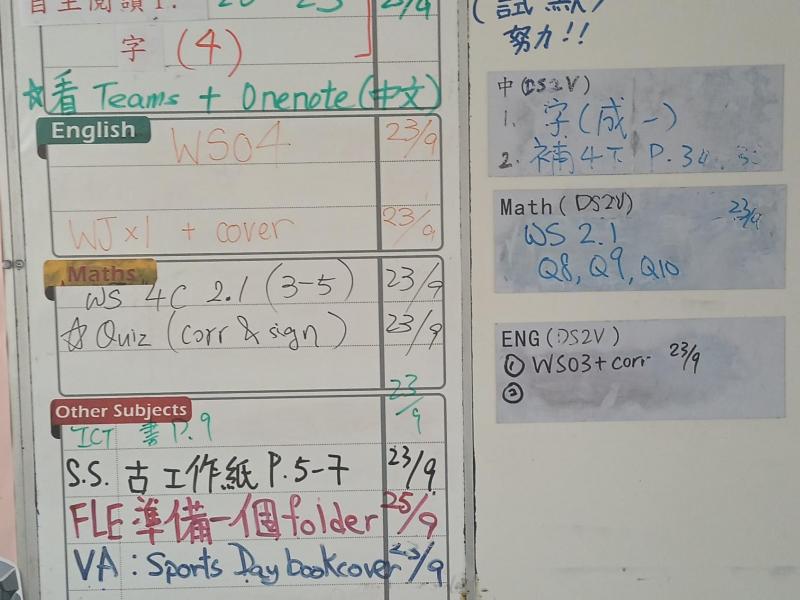 字 (4)
☆看 Teams + Onenote (中文)
English
WS04 23/9
WJ x1 + cover 23/9
Maths
WS 4C 2.1 (3-5) 23/9
☆ Quiz (corr & sign) 23/9
Other Subjects
ICT 書 P.9 23/9
S.S. 古工作紙 P.5-7 23/9
FLE 準備一個folder 25/9
VA : Sports Day bookcover 23/9
努力!!
中(DS2V)
1. 字(成一)
2. 補4下 P.34
Math (DS2V) 23/9
WS 2.1
Q8, Q9, Q10
ENG (DS2V)
① WS03 + corr 23/9
②